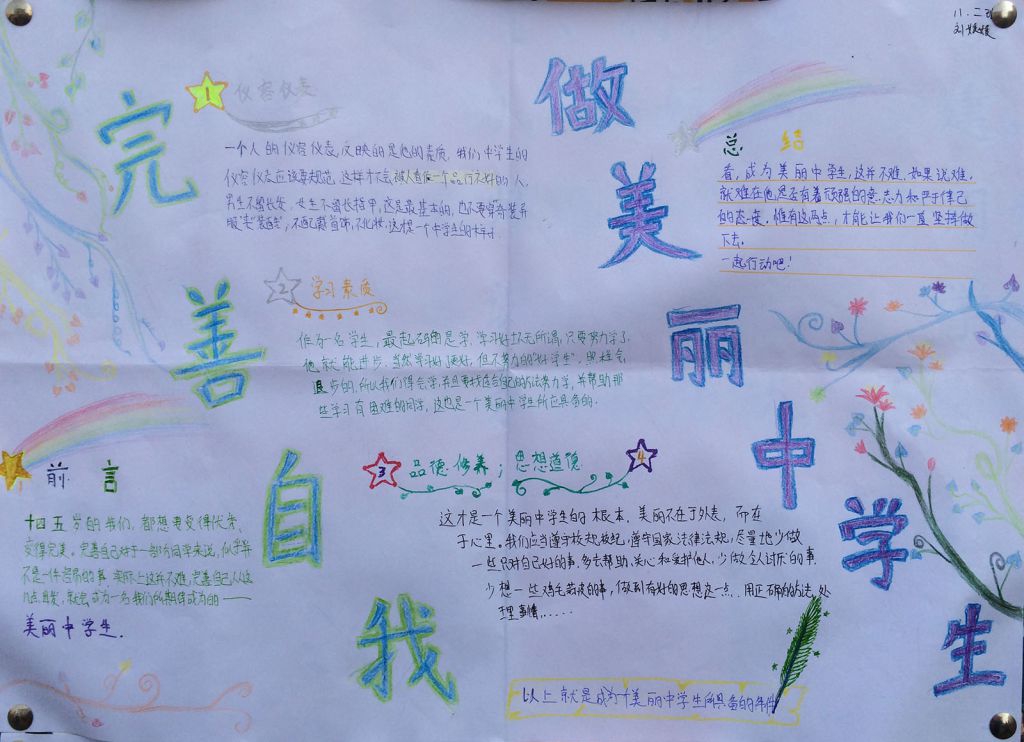 完善自我
做美丽中学生
11.二
前言
十四五岁的我们,都想要变得优秀,
变得完美。完善自己对于一部分同学来说,似乎并
不是一件容易的事,实际上这并不难,完善自己从这
几点出发,就会成为一名我们所期待成为的——
美丽中学生.
1 仪容仪表
一个人的仪容仪表,反映的是他的素质,我们中学生的
仪容仪表应该要规范,这样才不会被人造假一个品行不好的人,
男生不留长发,女生不留长指甲,这是最基本的,也不要穿奇装异
服"装酷",不配戴首饰,不化妆,这才是一个中学生的样子.
2 学习素质
作为一名学生,最起码的是学,学习好坏无所谓,只要努力学了
他就能进步,当然学习好了更好,但不努力的"好学生",照样会
退步的,所以我们得会学,并且要找适合自己的方法努力学,并帮助那
些学习有困难的同学,这也是一个美丽中学生所应具备的.
3 品德修养;思想道德 4
这才是一个美丽中学生的根本,美丽不在于外表,而在
于心里。我们应当遵守校规校纪,遵守国家法律法规,尽量地少做
一些只对自己好的事,多去帮助、关心和爱护他人,少做令人讨厌的事.
少想一些鸡毛蒜皮的事,做到有好的思想这一点.用正确的方法处
理事情......
以上就是成为美丽中学生所具备的条件
总结
看,成为美丽中学生,这并不难.如果说难,
就难在他是否有着顽强的意志力和严于律己
的态度。惟有这两点,才能让我们一直坚持做
下去.
一起行动吧!